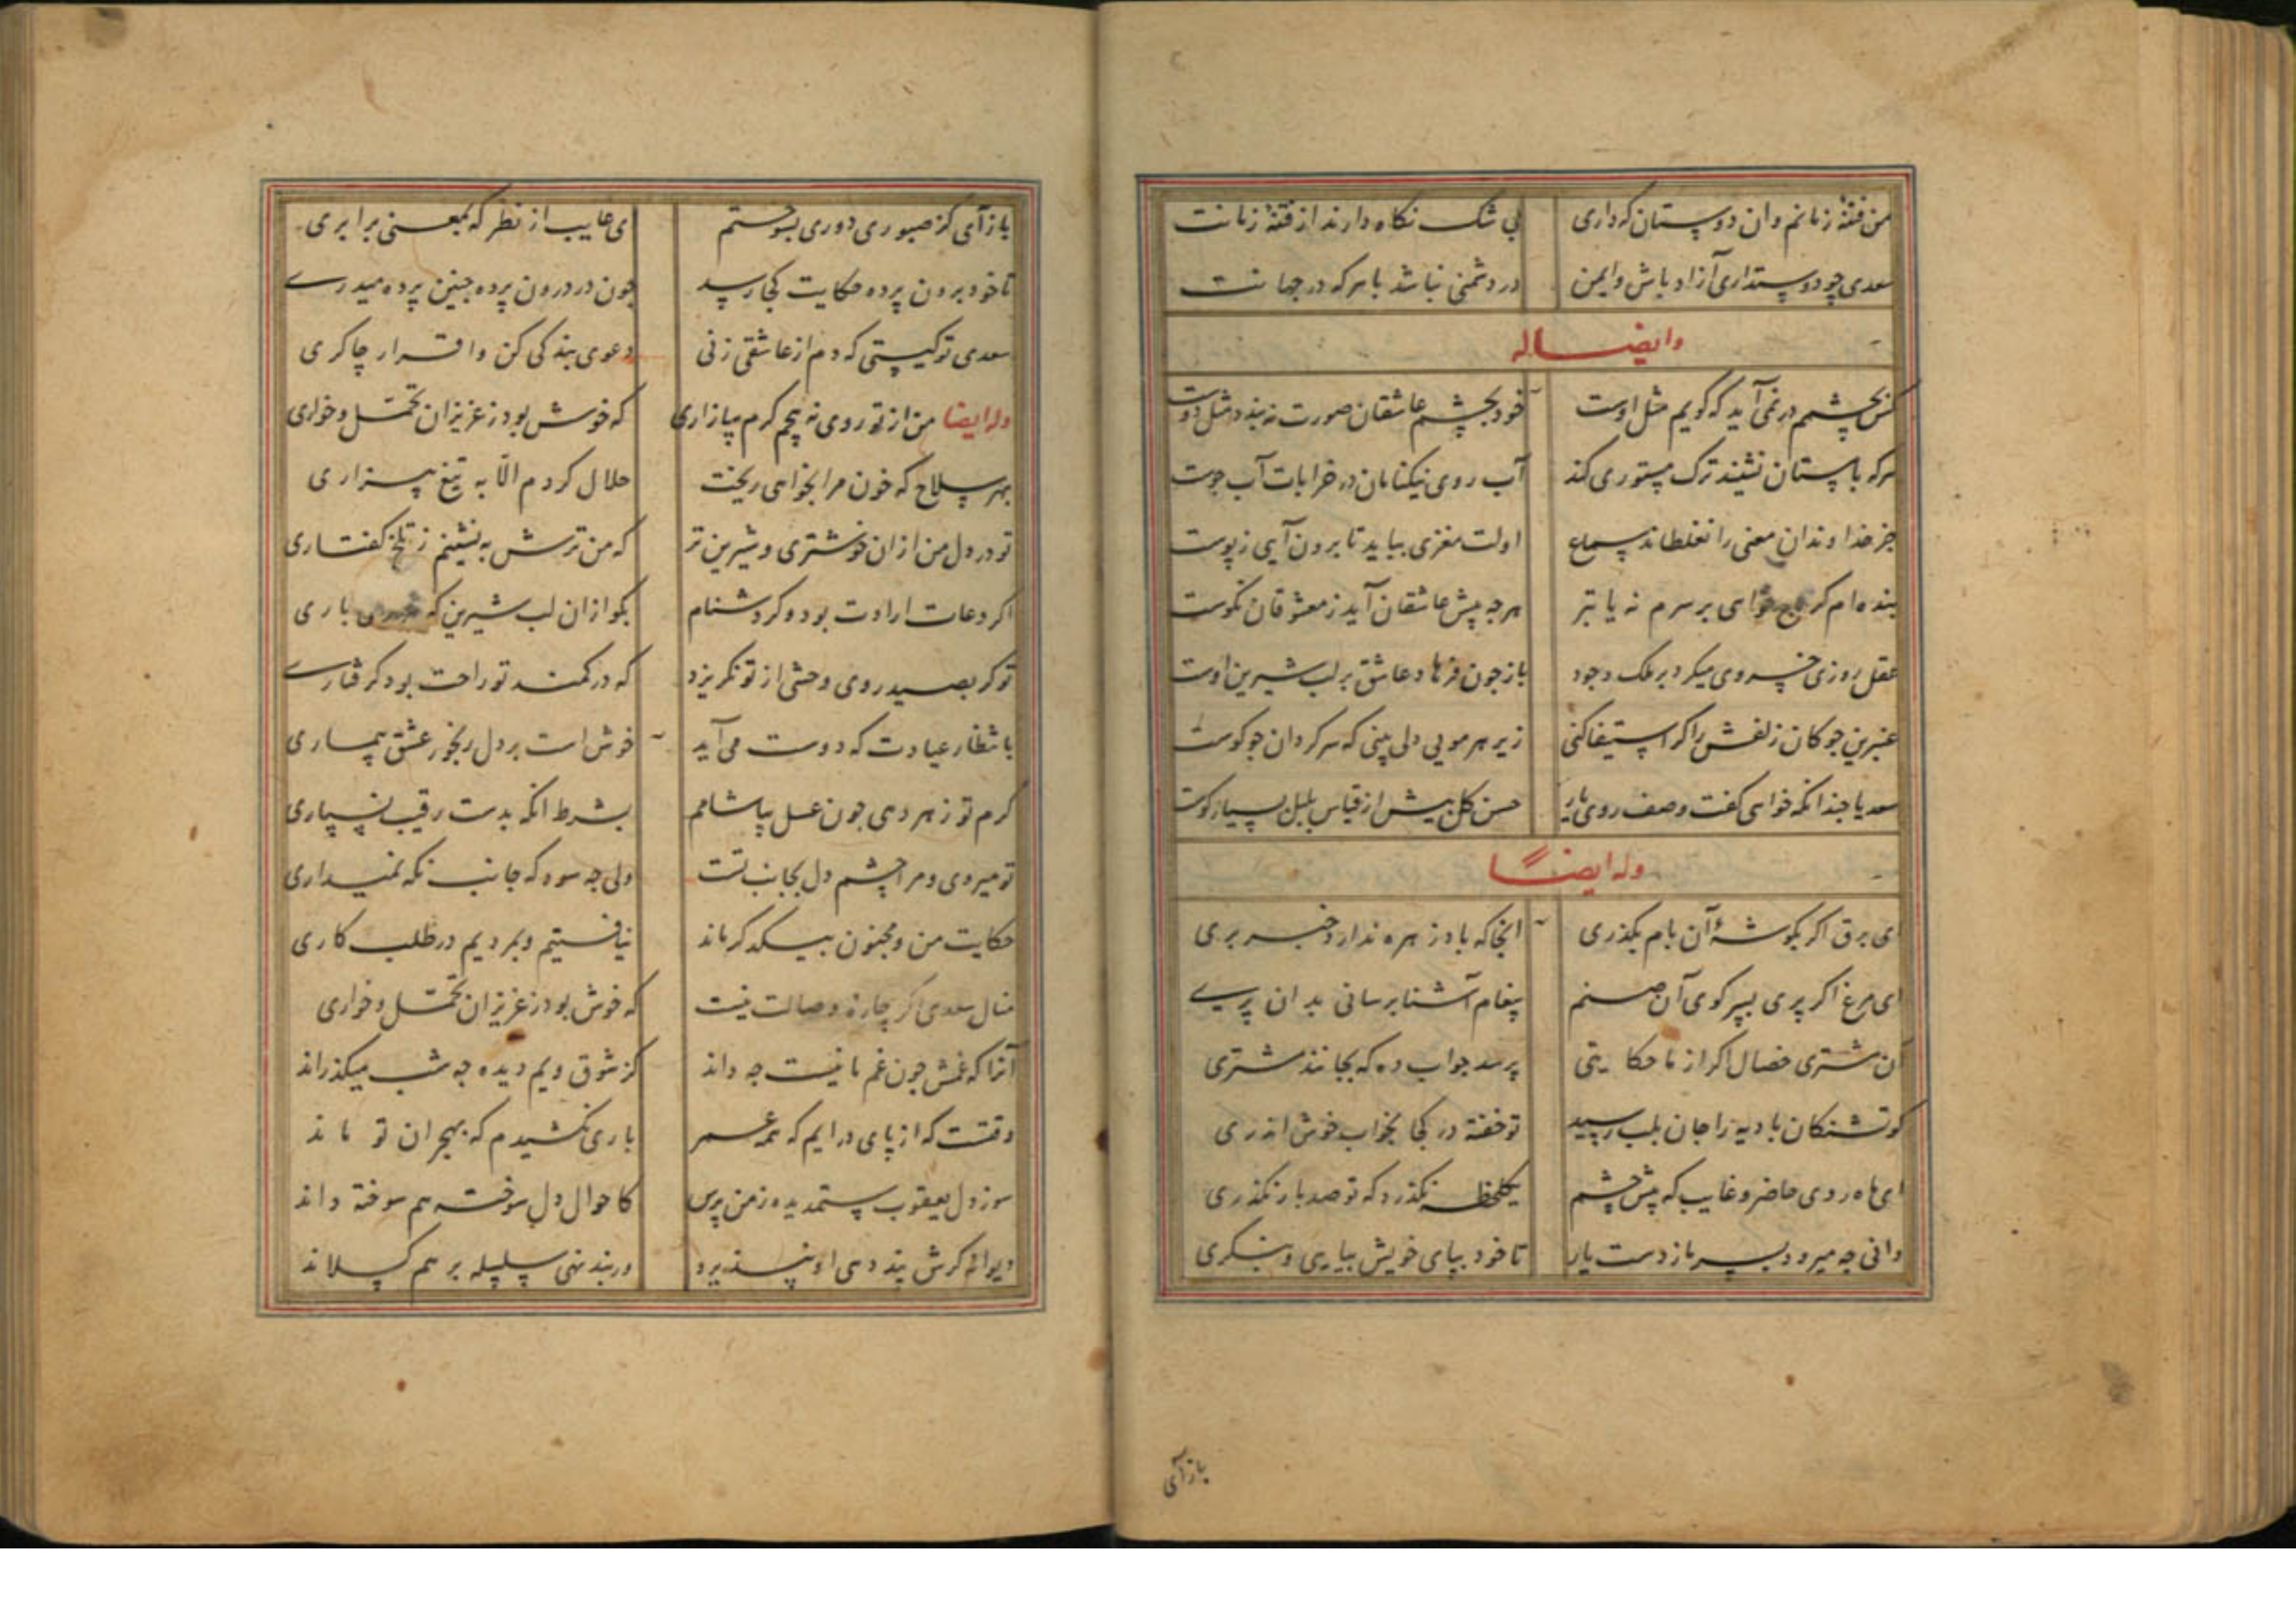 من فتنهٔ زمانم وان دوستان که داری بی شک نکاه دارند از فتنهٔ زمانت
سعدی چو دوستداری آزاد باش وایمن در دشمنی نباشد با هرکه در جهانت
وایضا له
کس بچشمم در نمی آید که کویم مثل اوست خود بچشم عاشقان صورت نه بندد مثل دوست
هرکه با مستان نشیند ترک مستوری کند آب روی نیکنامان در خرابات آب جوست
جز خداوندان معنی را نغلطاند سماع اولت مغزی بباید تا برون آیی ز پوست
بنده ام کر خواهی بر سرم نه یا تبر هرجه پیش عاشقان آید ز معشوقان نکوست
عقل روزی خسروی میکرد بر ملک وجود باز جون فرهاد عاشق بر لب شیرین اوست
عنبرین جوکان زلفش را کر استیفا کنی زیر هر مویی دلی بینی که سرکردان جوکوست
سعدیا جندانکه خواهی کفت وصف روی یار حسن کل بیش از قیاس بلبل بسیارکوست
وله ایضاً
ای برق اکر بکوشهٔ آن بام بکذری انجا که باد زهره ندارد خبر بری
ای مرغ اکر پری بسر کوی آن صنم پیغام آشنا برسانی بدان پری
آن مشتری خصال اکر از ما حکایتی پرسد جواب ده که بجانند مشتری
کو تشنکان بادیه را جان بلب رسید تو خفته در کجا بخواب خوش اندری
ای ماه روی حاضر و غایب که پیش چشم یکلحظه نکذرد که تو صد بار نکذری
دانی جه میرود بسر ما ز دست یار تا خود بپای خویش بیایی و بنکری
بازآی
بازآی کز صبوری دوری بسوختم ای غایب از نظر که بمعنی برابری
تا خود برون پرده حکایت کجا رسد جون در درون پرده جنین پرده میدری
سعدی تو کیستی که دم از عاشقی زنی دعوی بندکی کن و اقرار چاکری
وله ایضا من از تو روی نه پیچم کرم بیازاری که خوش بود ز عزیزان تحمل و خواری
بهر سلاح که خون مرا بخواهی ریخت حلال کردم الا به تیغ بیزاری
تو در دل من ازان خوشتری و شیرین تر که من ترش به نشینم ز تلخ کفتاری
اکر دعات ارادت بود و کر دشنام بکو ازان لب شیرین که باری
تو کر بصید روی وحشی از تو نکریزد که در کمند تو راحت بود کرفتاری
بانتظار عیادت که دوست می آید خوش است بر دل رنجور عشق بیماری
کرم تو زهر دهی جون عسل بیاشامم بشرط انکه بدست رقیب نسپاری
تو میروی و مرا چشم دل بجانب تست ولی جه سود که جانب نکه نمیداری
حکایت من و مجنون بیکدکر ماند نیافتیم و بمردیم در طلب کاری
منال سعدی اکر چارهٔ وصالت نیست که خوش بود ز عزیزان تحمل و خواری
آنرا که غمش جون غم ما نیست جه داند کز شوق ویم دیده جه شب میکذراند
وقتست که از پای درایم که همه عمر باری نکشیدم که بهجران تو ماند
سوز دل یعقوب ستمدیده ز من پرس کاحوال دل سوخته هم سوخته داند
دیوانه کرش پند دهی او نپذیرد ور بند نهی سلسله بر هم کسلاند